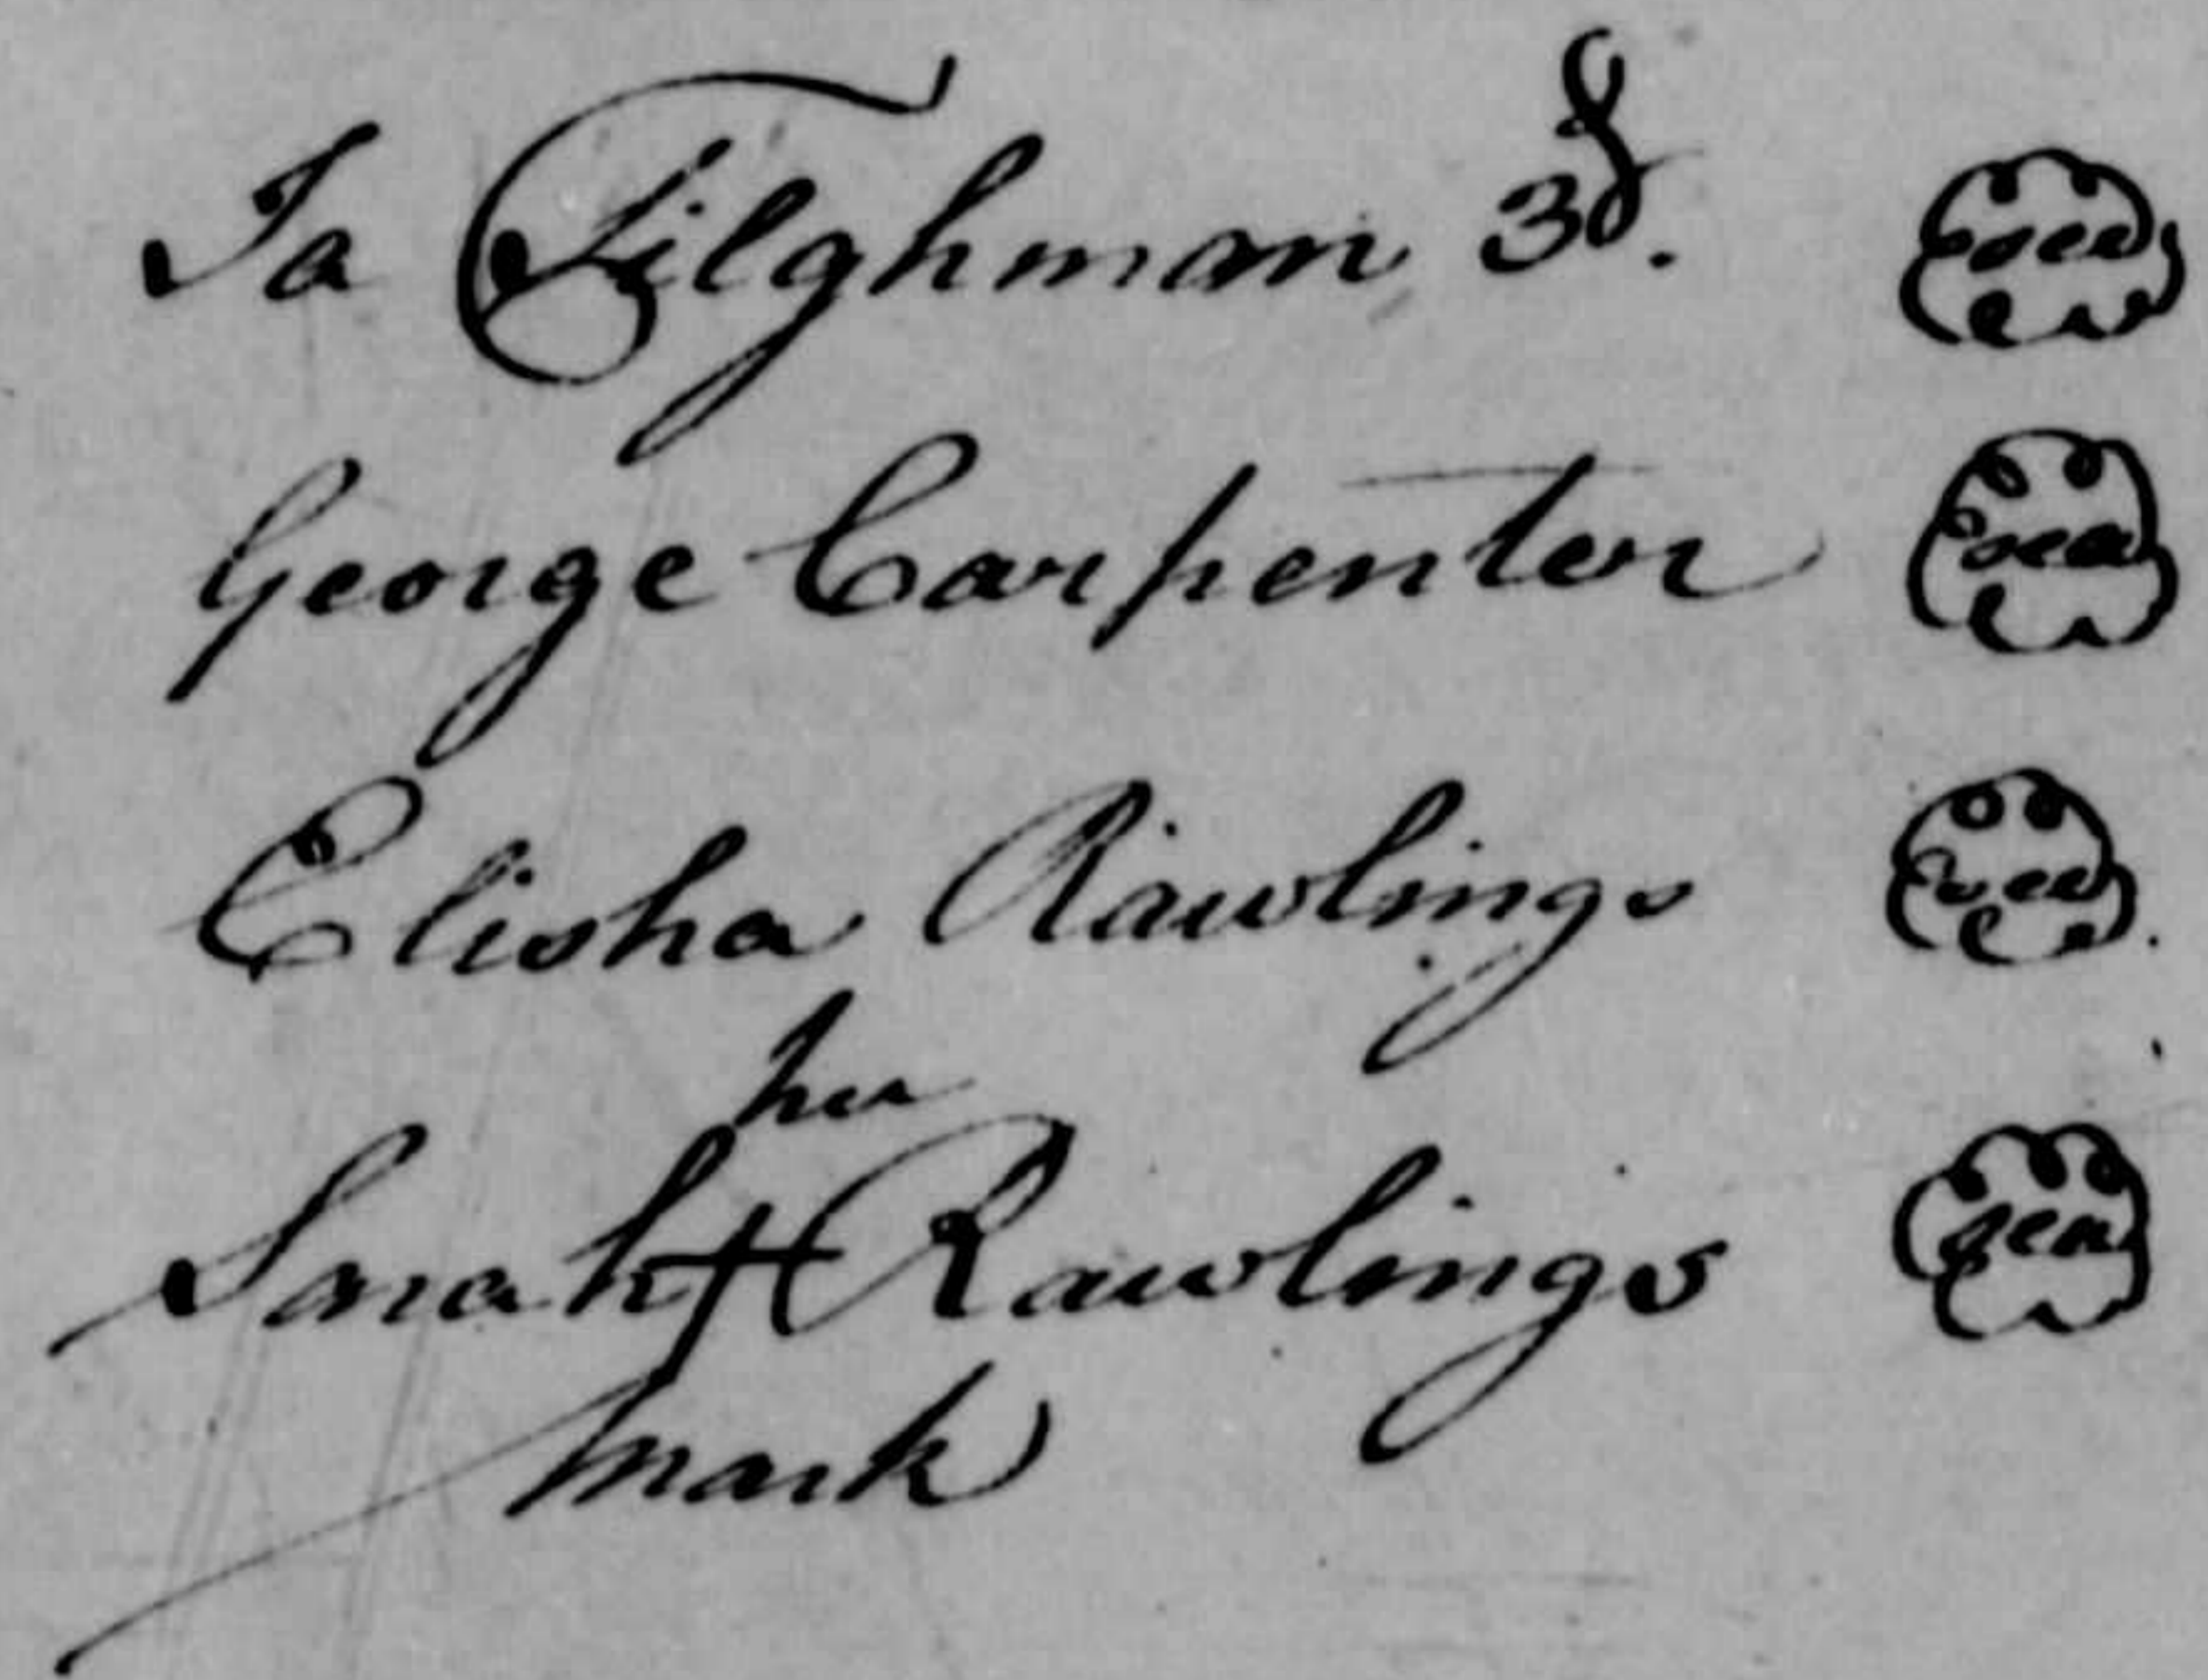 Ja Tilghman, 3d. seal
George Carpenter seal
Elisha Rawlings seal
her
Sarah + Rawlings seal
mark